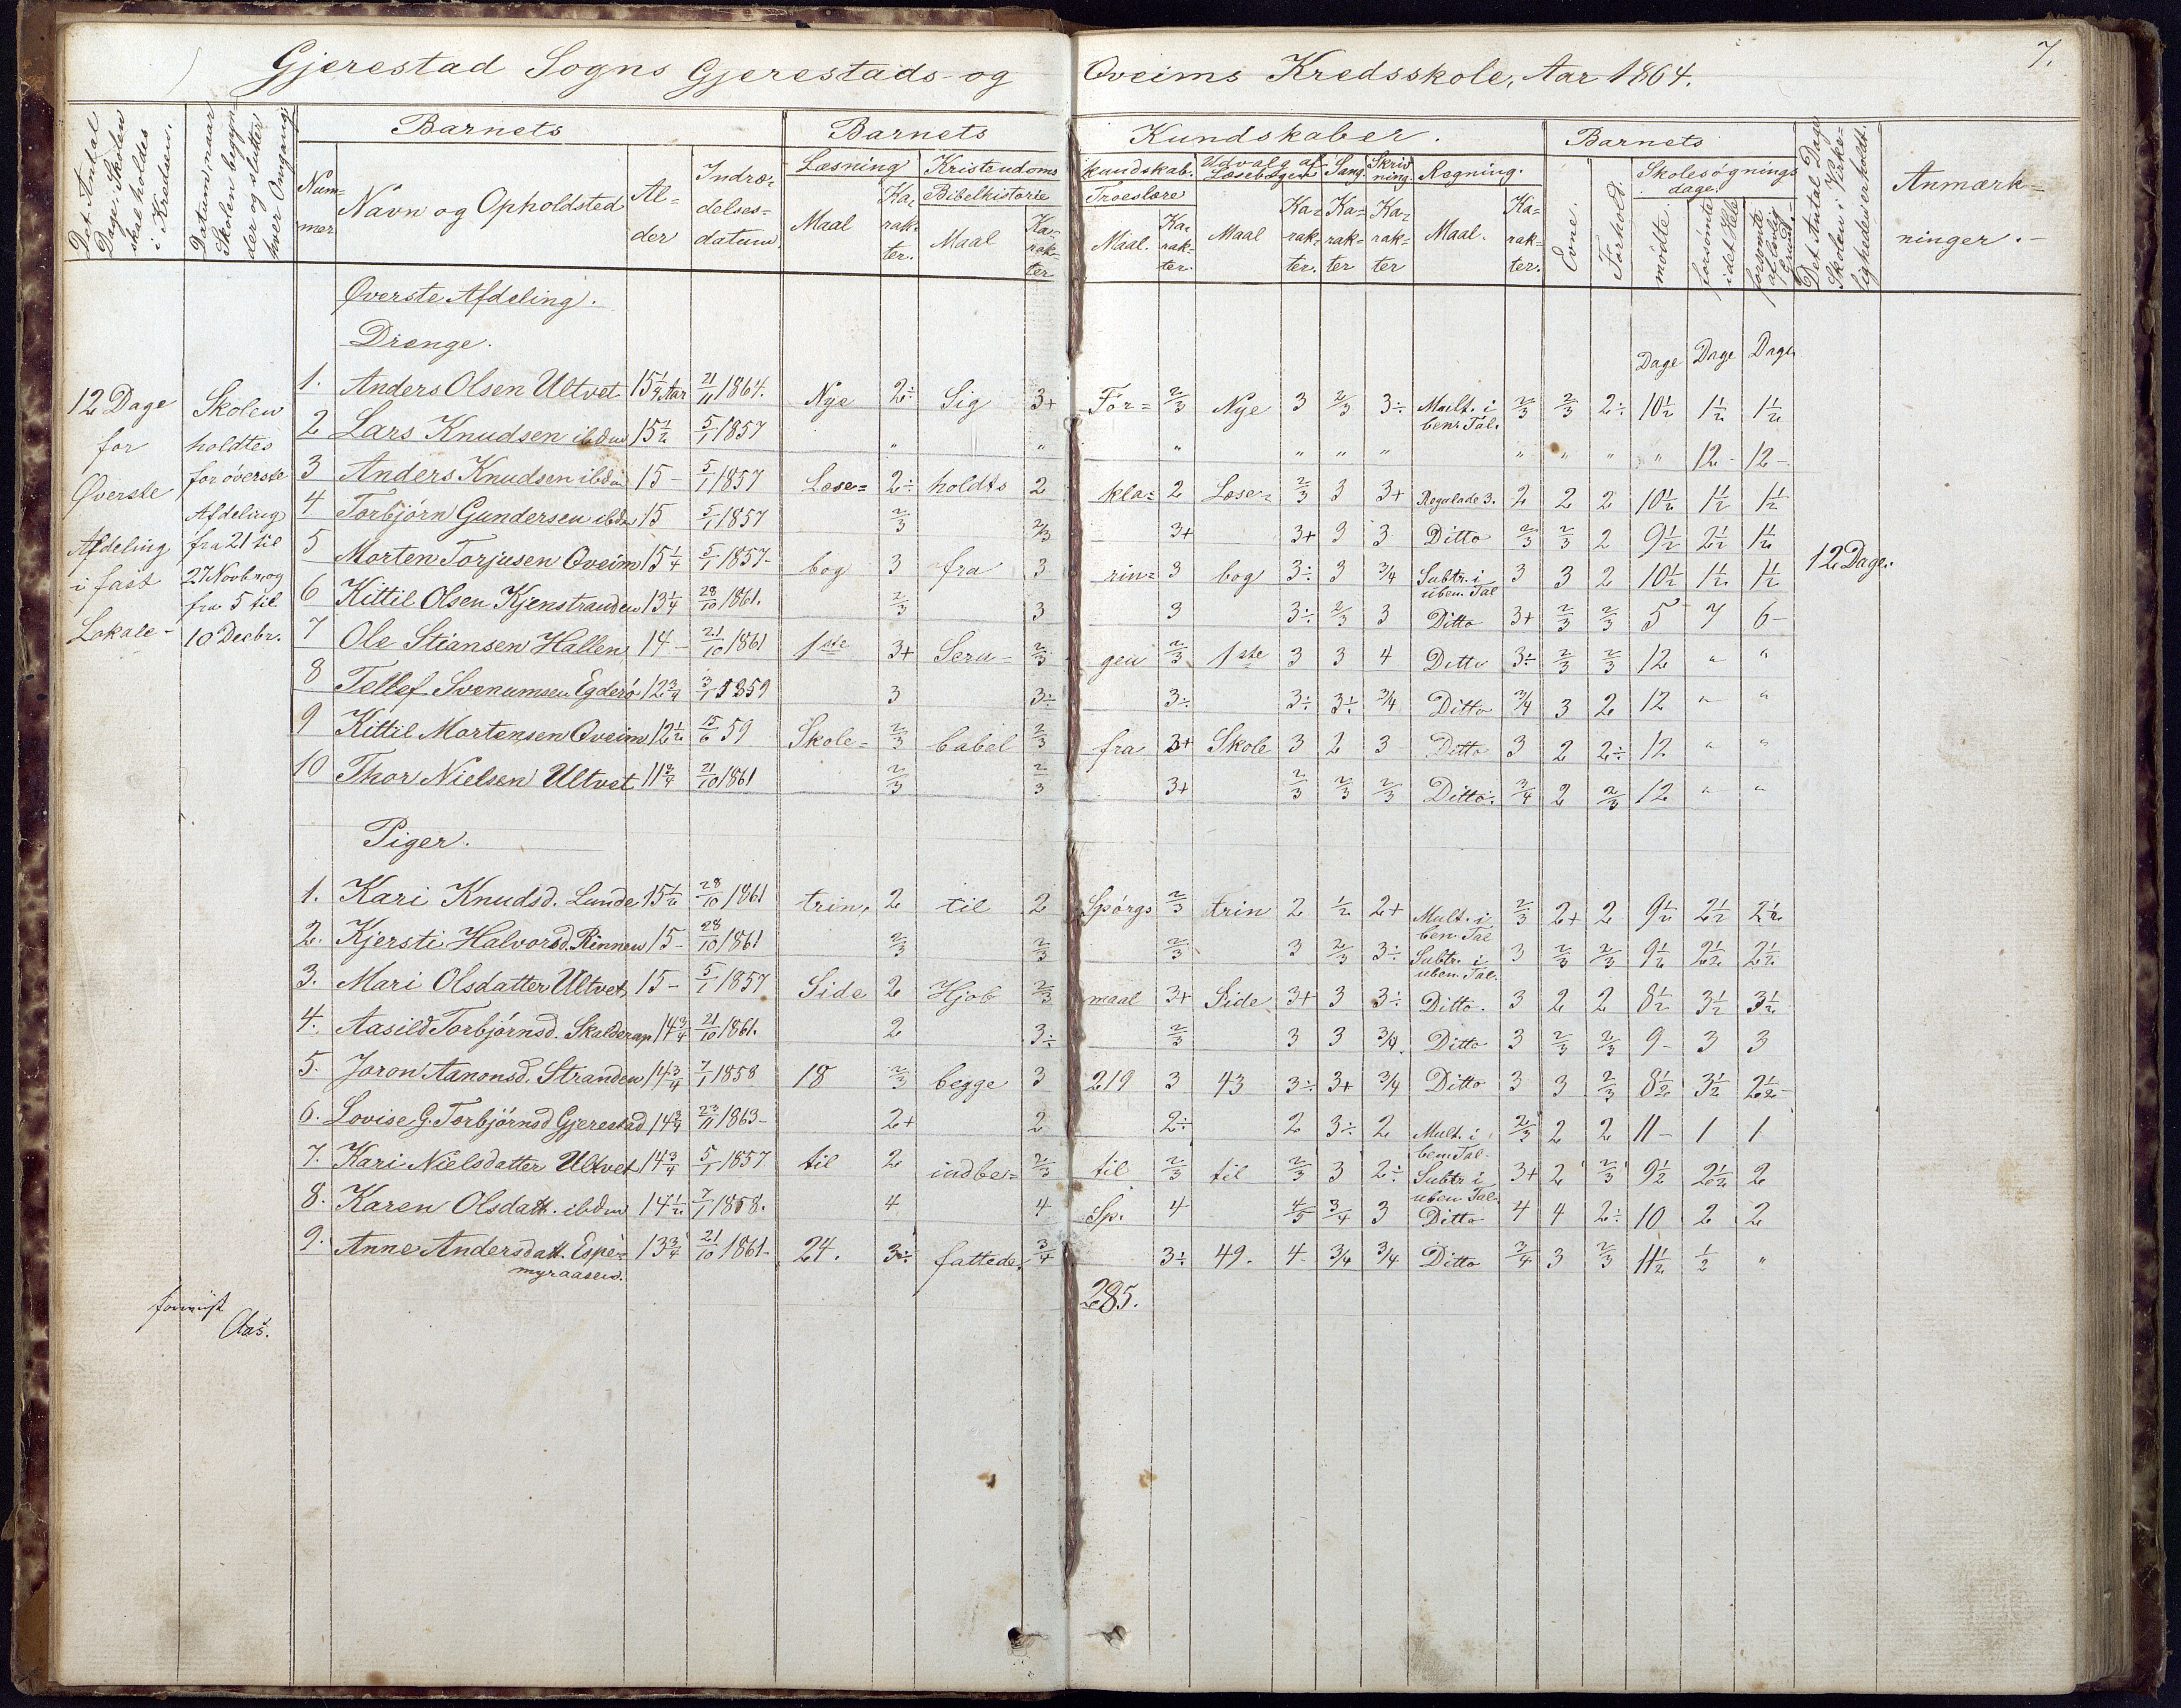 Gjerestad Sogns Gjerestads- og Qveims Kredsskole, Aar 1864. 7.
Det Antal Dage, Skolen skal holdes i Kredsen.
Datum, naar Skolen begynder og slutter hver Omgang.
Barnets
Num=mer
Navn og Opholdsted
Al=der
Indræ=delses=datum
Barnets Kundskaber.
Læsning
Maal
Ka=rak=ter.
Kristendoms kundskab.
Bibelhistorie
Maal
Ka=rak=ter
Troeslære
Maal.
Ka=rak=ter.
Udvalg af Læsebogen
Maal
Ka=rak=ter.
Sang.
Ka=rak=ter
Skriv=ning
Ka=rak=ter
Regning.
Maal.
Ka=rak=ter.
Barnets
Evne.
Forhold.
Skolesøgnings dage.
mødte.
forsømte i det Hele
forsømte af lovlig Grund.
Det Antal Dage Skolen i Virke=ligheden er holdt.
Anmærk=ninger.
12 Dage for Øverste Afdeling i fast Lokale-
Skolen holdtes for øverste Afdeling fra 21 til 27 Novbr. og fra 5 til 10 Decbr.
Øverste Afdeling.
Drenge.
Dage Dage Dage
1. Anders Olsen Ultvet 15 1/4 Aar 21/11 1864. Nye 2÷ Sig 3+ For= 2/3 Nye 3 2/3 3÷ Mult. i ben. Tal. 2/3 2/3 2÷ 10½ 1½ 1½
2 Lars Knudsen ibdm 15½ 5/1 1857 " " " " " " " " " " 12- 12-
3 Anders Knudsen ibdm 15- 5/1 1857 Læse= 2÷ holdts 2 kla= 2 Læse= 2/3 3 3+ Regulade 3. 2 2 2 10½ 1½ 1½
4 Torbjørn Gundersen ibdm 15 5/1 1857 2/3 2/3 3+ 3+ 3 3 Ditto 2/3 2/3 2 9½ 2½ 1½
5 Morten Torjusen Qveim 15 1/4 5/1 1857- bog 3 fra 3 rin= 3 bog 3÷ 3 3/4 Subtr. i uben. Tal 3 3 2 10½ 1½ 1½ 12 Dage.
6 Kittil Olsen Kjenstranden 13 1/4 28/10 1861. 2/3 3 3 3÷ 2/3 3 Ditto 3+ 2/3 2/3 5 7 6-
7 Ole Stiansen Hallen 14- 21/10 1861 1ste 3+ Seru= 2/3 gen 2/3 1ste 3 3 4 Ditto 3÷ 2/3 2/3 12 " "
8 Tellef Svenumsen Egderø 12 3/4 3/1 1859 3 3÷ 3÷ 3÷ 3÷ 3/4 Ditto 3/4 3 2 12 " "
9 Kittil Mortensen Qveim 12½ 15/6 59 Skole= 2/3 babel 2/3 fra 3+ Skole 3 2 3 Ditto 3 2 2÷ 12 " "
10 Thor Nielsen Ultvet 11 3/4 21/10 1861 2/3 2/3 3+ 2/3 2/3 2/3 Ditto. 3/4 2 2/3 12 " "
Piger.
1. Kari Knudsd. Lunde 15½ 28/10 1861 trin, 2 til 2 Spørgs 2/3 trin 2 ½ 2+ Mult. i ben. Tal 2/3 2+ 2 9½ 2½ 2½
2. Kjersti Halvorsd. Rinnen 15- 28/10 1861 2/3 2/3 2/3 3 2/3 3÷ Subtr. i uben. Tal. 3 2/3 2/3 9½ 2½ 2½
3. Mari Olsdatter Ultvet, 15- 5/1 1857 Side 2 Hjob 2/3 maal 3+ Side 3+ 3 3÷ Ditto. 3 2 2 8½ 3½ 3½
4. Aasild Torbjørnsd. Skalderap 14 3/4 21/10 1861. 2 3÷ 2/3 3 3 3/4. Ditto 3 2/3 2/3 9- 3 3
5. Joron Aanonsd. Stranden 14 3/4 7/1 1858 18 2/3 begge 3 219 3 43 3÷ 3+ 3/4 Ditto 3 3 2/3 8½ 3½ 2½-
6. Lovise G. Torbjørnsd Gjerestad 14 3/4 23/11 1863- 2+ 2 2÷ 2 3÷ 2 Mult. i ben. Tal. 2/3 2 2 11- 1 1
7. Kari Nielsdatter Ultvet 14 3/4 5/1 1857 til 2 indbe= 2/3 til 2/3 til 2/3 3 2÷ Subtr i uben Tal. 3+ 2 2/3 9½ 2½ 2
8. Karen Olsdatt. ibdm 14½ 7/1 1858. 4 4 Sp. 4 4/5 3/4 3 Ditto 4 4 2÷ 10 2 2
9. Anne Andersdatt. Espe=myraasen. 13 3/4 21/10 1861- 24. 3÷ fattede. 3/4 3÷ 49. 4- 3/4 3/4 Ditto 3/4 3 2/3 11½ ½ "
285.
Aas.